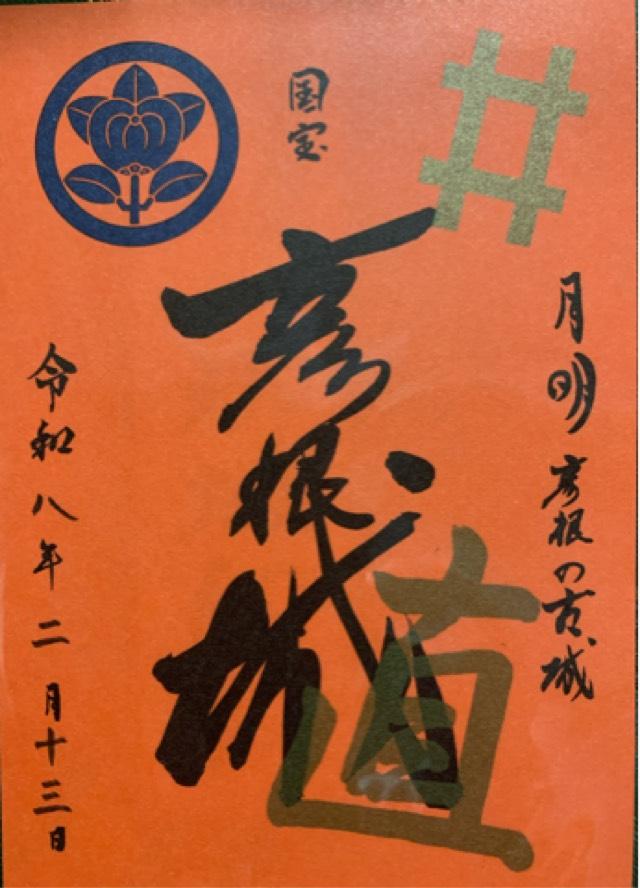 井
月明 彦根の古城
国宝
彦根城
直
令和八年二月十三日